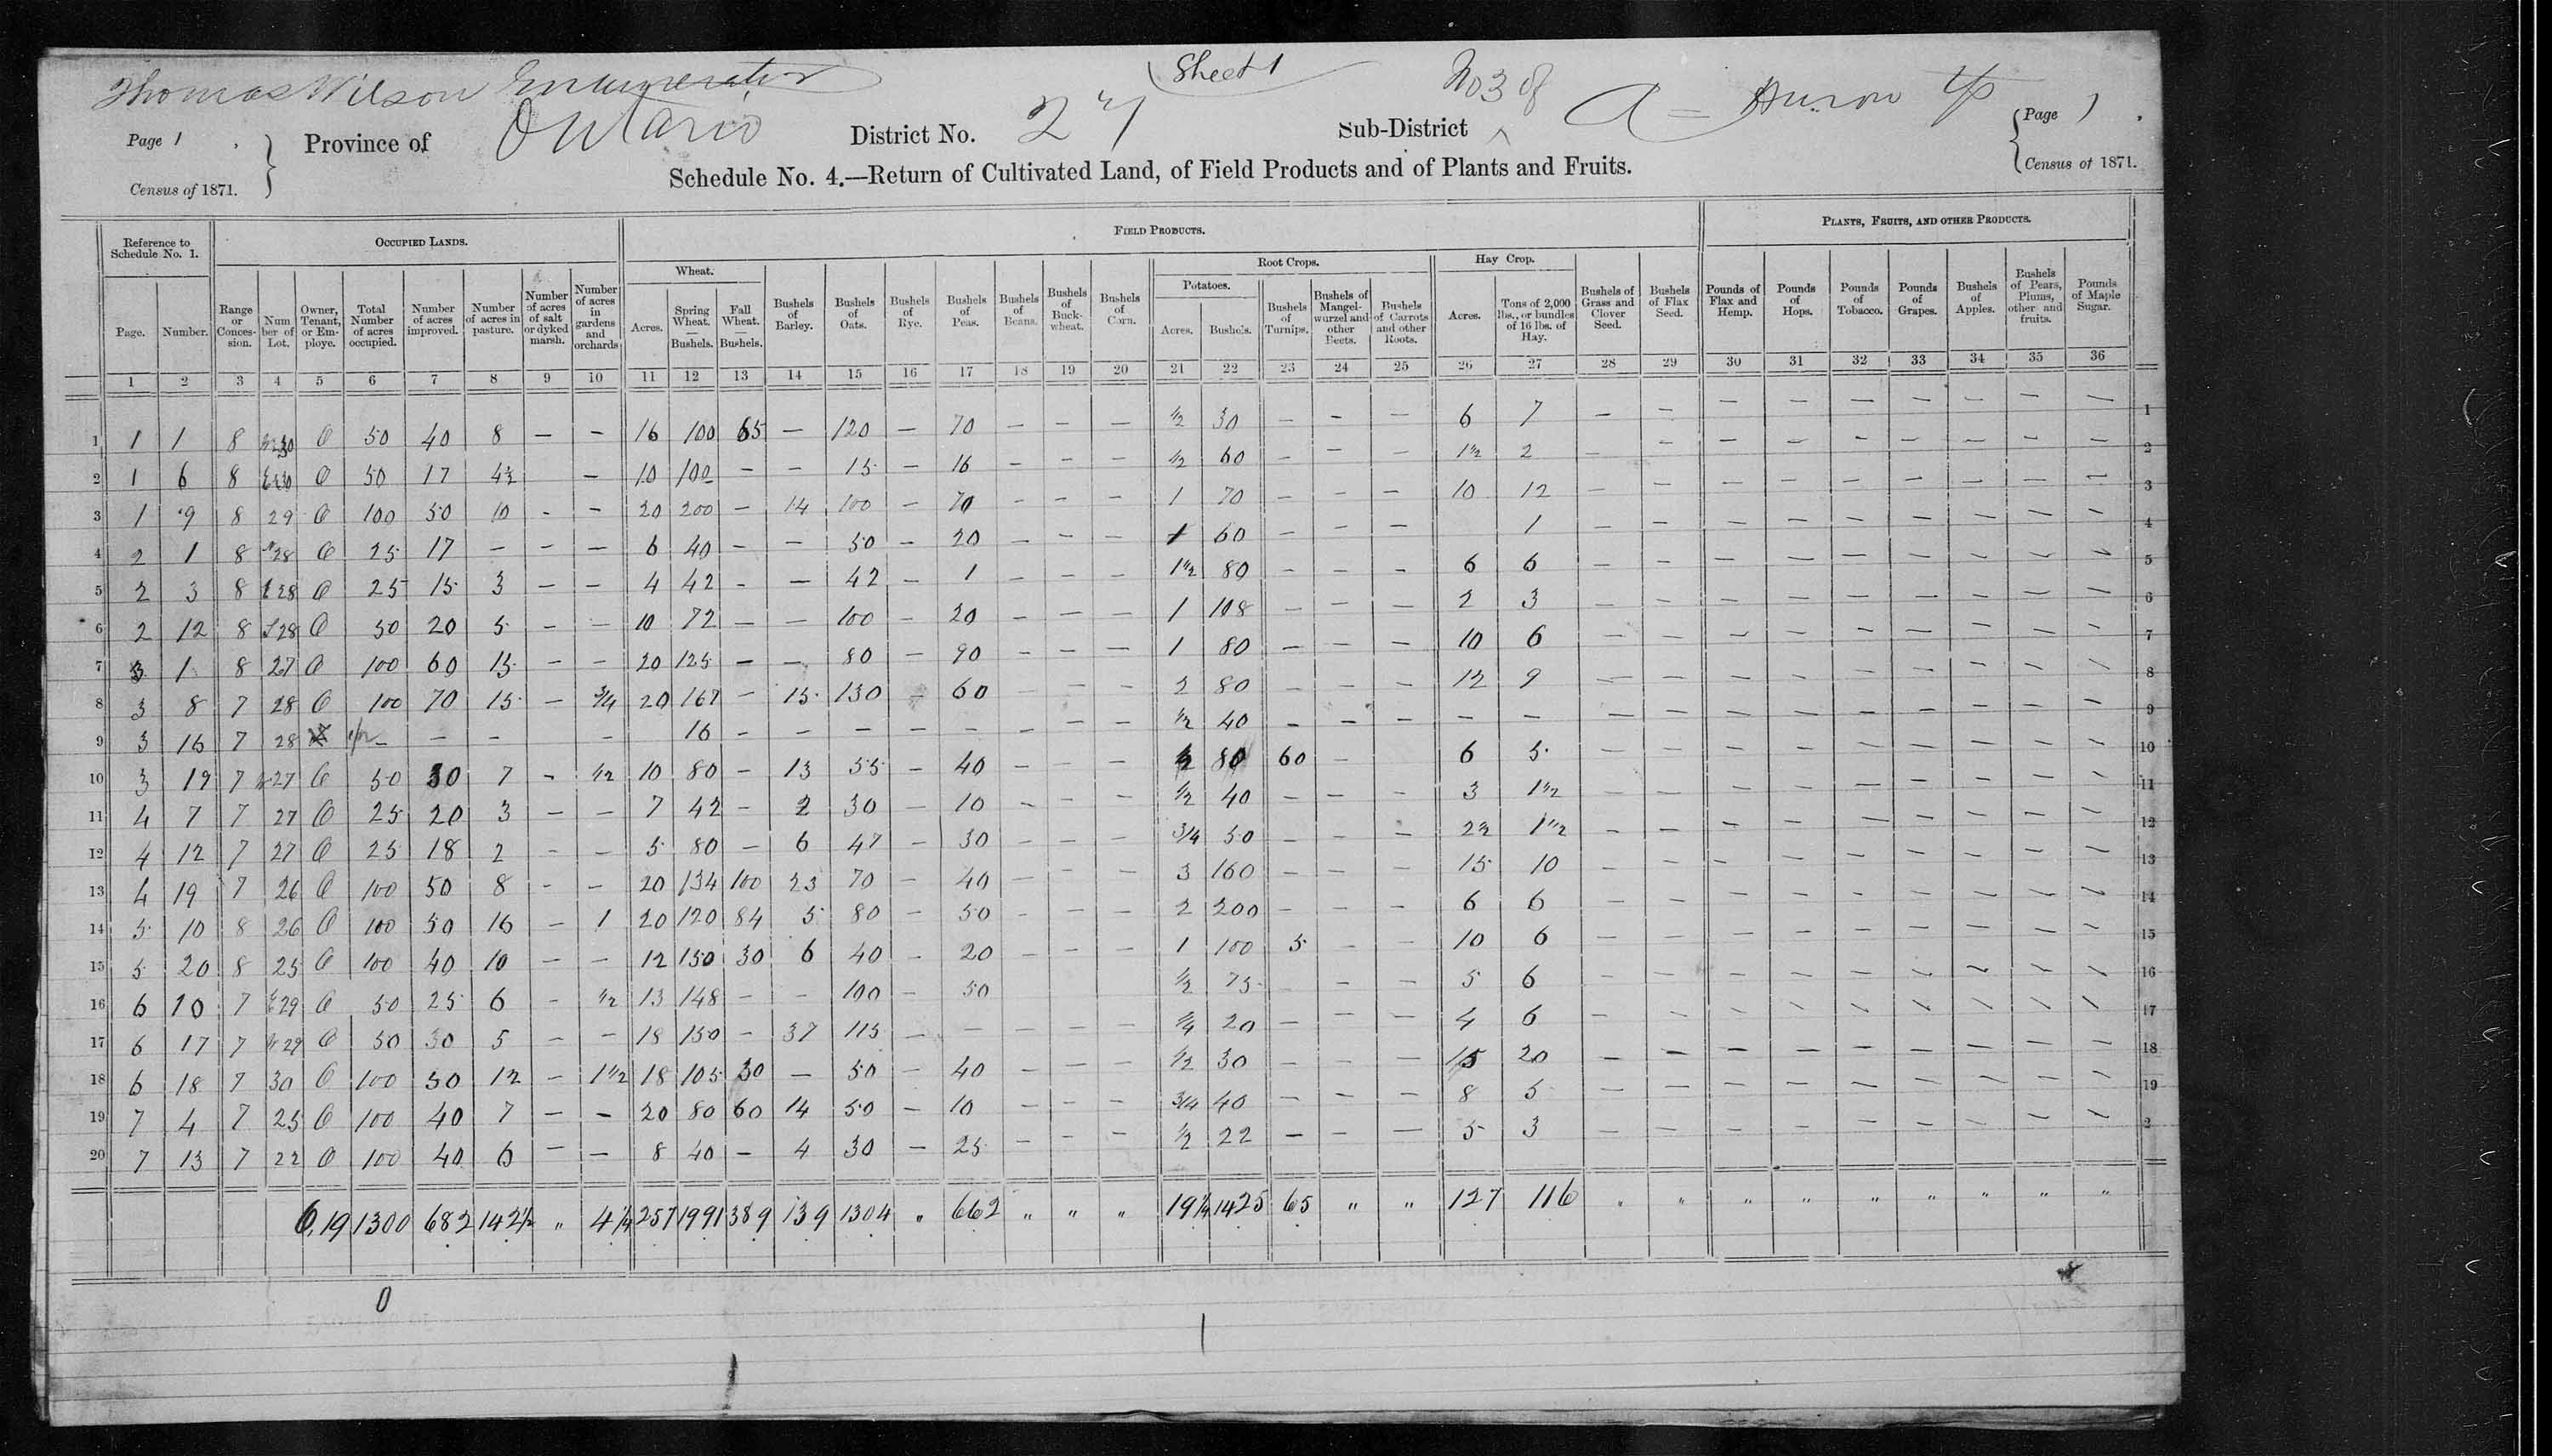 Thomas Wilson Enumerator Sheet 1 No 3 of A = Huron Tp
Page 1 Province of Ontario District No. 27 Sub-District Page 1
Census of 1871. Census of 1871.
Schedule No. 4.—Return of Cultivated Land, of Field Products and of Plants and Fruits.
Reference to Schedule No. 1. OCCUPIED LANDS. FIELD PRODUCTS. PLANTS, FRUITS, AND OTHER PRODUCTS.
Wheat. Root Crops. Hay Crop.
Potatoes.
Page. Number. Range or Concession. Number of Lot. Owner, Tenant, or Employe. Total Number of acres occupied. Number of acres improved. Number of acres in pasture. Number of acres of salt or dyked marsh. Number of acres in gardens and orchards Acres. Spring Wheat.—Bushels. Fall Wheat.—Bushels. Bushels of Barley. Bushels of Oats. Bushels of Rye. Bushels of Peas. Bushels of Beans. Bushels of Buck-wheat. Bushels of Corn. Acres. Bushels. Bushels of Turnips. Bushels of Mangel-wurzel and other Beets. Bushels of Carrots and other Roots. Acres. Tons of 2,000 lbs., or bundles of 16 lbs. of Hay. Bushels of Grass and Clover Seed. Bushels of Flax Seed. Pounds of Flax and Hemp. Pounds of Hops. Pounds of Tobacco. Pounds of Grapes. Bushels of Apples. Bushels of Pears, Plums, other and fruits. Pounds of Maple Sugar.
1 2 3 4 5 6 7 8 9 10 11 12 13 14 15 16 17 18 19 20 21 22 23 24 25 26 27 28 29 30 31 32 33 34 35 36
1 1 1 8 30 O 50 40 8 — — 16 100 65 — 120 — 70 — — — ½ 30 — — — 6 7 — — — — — — — — — 1
2 1 6 8 E½30 O 50 17 4½ — 10 100 — — 15 — 16 — — — ½ 60 — — — 1½ 2 — — — — — — — — — 2
3 1 9 8 29 O 100 50 10 — — 20 200 — 14 100 — 70 — — — 1 70 — — — 10 12 — — — — — — — — — 3
4 2 1 8 28 O 25 17 — — — 6 40 — — 50 — 20 — — — 1 60 — — — 1 — — — — — — — — — 4
5 2 3 8 28 O 25 15 3 — — 4 42 — — 42 — 1 — — — 1½ 80 — — — 6 6 — — — — — — — — — 5
6 2 12 8 28 O 50 20 5 — — 10 72 — — 100 — 20 — — — 1 108 — — — 2 3 — — — — — — — — — 6
7 3 1 8 27 O 100 60 15 — — 20 125 — — 80 — 90 — — — 1 80 — — — 10 6 — — — — — — — — — 7
8 3 8 7 28 O 100 70 15 — ¾ 20 167 — 15 130 — 60 — — — 2 80 — — — 12 9 — — — — — — — — — 8
9 3 16 7 28 — — — — 16 — — — — — — — — ½ 40 — — — — — — — — — — — — — — 9
10 3 19 7 27 O 50 30 7 — ½ 10 80 — 13 55 — 40 — — — ½ 80 60 — 6 5 — — — — — — — — — 10
11 4 7 7 27 O 25 20 3 — — 7 42 — 2 30 — 10 — — — ½ 40 — — — 3 1½ — — — — — — — — — 11
12 4 12 7 27 O 25 18 2 — — 5 80 — 6 47 — 30 — — — ¾ 50 — — — 2½ 1½ — — — — — — — — — 12
13 4 19 7 26 O 100 50 8 — — 20 134 100 23 70 — 40 — — — 3 160 — — — 15 10 — — — — — — — — — 13
14 5 10 8 26 O 100 50 16 — 1 20 120 84 5 80 — 50 — — — 2 200 — — — 6 6 — — — — — — — — — 14
15 5 20 8 25 O 100 40 10 — — 12 150 30 6 40 — 20 — — — 1 100 5 — — 10 6 — — — — — — — — — 15
16 6 10 7 E½29 O 50 25 6 — ½ 13 148 — — 100 — 50 ½ 75 — — — 5 6 — — — — — — — — — 16
17 6 17 7 29 O 50 30 5 — — 18 150 — 37 115 — — — — — ¼ 20 — — — 4 6 — — — — — — — — — 17
18 6 18 7 30 O 100 50 12 — 1½ 18 105 30 — 50 — 40 — — — ½ 30 — — — 15 20 — — — — — — — — — 18
19 7 4 7 25 O 100 40 7 — — 20 80 60 14 50 — 10 — — — ¾ 40 — — — 8 5 — — — — — — — — — 19
20 7 13 7 22 O 100 40 6 — — 8 40 — 4 30 — 25 — — — ½ 22 — — — 5 3 — — — — — — — — — 2
O,19 1300 682 142½ " 4¼ 257 1991 389 139 1304 " 662 " " " 19¼ 1425 65 " " 127 116 " " " " " " " " "
0